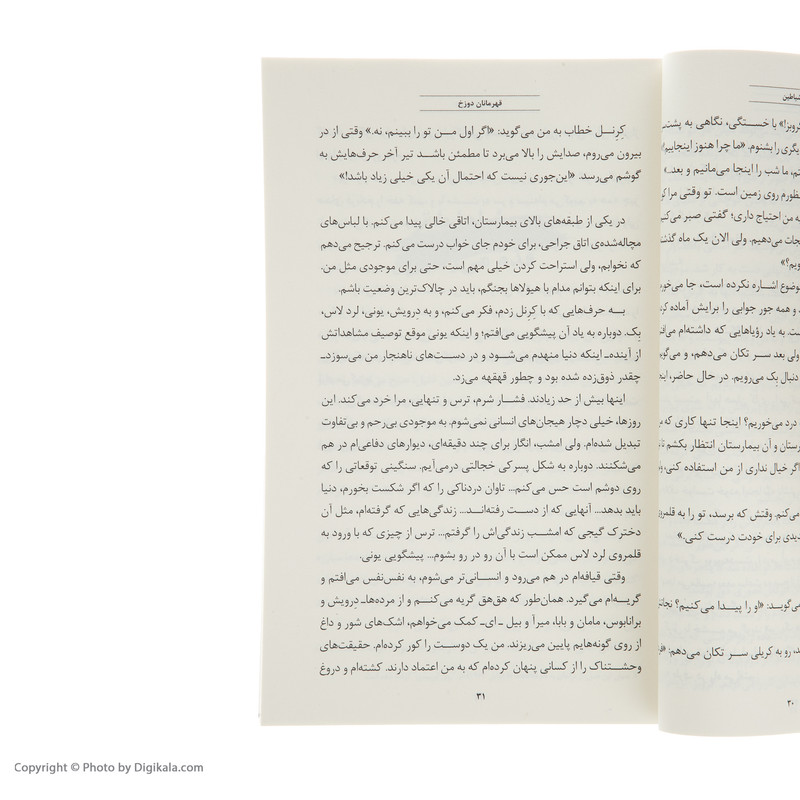 شیاطین
با خستگی، نگاهی به پشت
دیگری را بشنوم. «ما چرا هنوز اینجاییم
ما شب را اینجا می‌مانیم و بعد
روی زمین است. تو وقتی مرا
به من احتیاج داری؛ گفتی صبر
نجات می‌دهیم. ولی الان یک ماه
موضوع اشاره نکرده است، جا
و همه جور جوابی را برایش آماده
به یاد رؤیاهایی که داشته‌ام
ولی بعد سر تکان می‌دهم، و
دنبال بِک می‌رویم. در حال حاضر،
درد می‌خوریم؟ اینجا تنها کاری که
و آن بیمارستان انتظار بکشم تا
اگر خیال نداری از من استفاده کنی،
می‌کنم. وقتش که برسد، تو را به قلمروی
برای خودت درست کنی.»
می‌گوید: «او را پیدا می‌کنیم؟
رو به کریلی سر تکان می‌دهم:
۳۰
قهرمانان دوزخ
کِرنل خطاب به من می‌گوید: «اگر اول من تو را ببینم، نه.» وقتی از در
بیرون می‌روم، صدایش را بالا می‌برد تا مطمئن باشد تیر آخر حرف‌هایش به
گوشم می‌رسد. «این‌جوری نیست که احتمال آن یکی خیلی زیاد باشد!»
در یکی از طبقه‌های بالای بیمارستان، اتاقی خالی پیدا می‌کنم. با لباس‌های
مچاله‌شده‌ی اتاق جراحی، برای خودم جای خواب درست می‌کنم. ترجیح می‌دهم
که نخوابم، ولی استراحت کردن خیلی مهم است، حتی برای موجودی مثل من.
برای اینکه بتوانم مدام با هیولاها بجنگم، باید در چالاک‌ترین وضعیت باشم.
به حرف‌هایی که با کِرنل زدم، فکر می‌کنم، و به درویش، یونی، لرد لاس،
بِک. دوباره به یاد آن پیشگویی می‌افتم؛ و اینکه یونی موقع توصیف مشاهداتش
از آینده‌ـ اینکه دنیا منهدم می‌شود و در دست‌های ناهنجار من می‌سوزدـ
چقدر ذوق‌زده شده بود و چطور قهقهه می‌زد.
اینها بیش از حد زیادند. فشار شرم، ترس و تنهایی، مرا خرد می‌کند. این
روزها، خیلی دچار هیجان‌های انسانی نمی‌شوم. به موجودی بی‌رحم و بی‌تفاوت
تبدیل شده‌ام. ولی امشب، انگار برای چند دقیقه‌ای، دیوارهای دفاعی‌ام در هم
می‌شکنند. دوباره به شکل پسرکی خجالتی درمی‌آیم. سنگینی توقعاتی را که
روی دوشم است حس می‌کنم... تاوان دردناکی را که اگر شکست بخورم، دنیا
باید بدهد... آنهایی که از دست رفته‌اند... زندگی‌هایی که گرفته‌ام، مثل آن
دخترک گیجی که امشب زندگی‌اش را گرفتم... ترس از چیزی که با ورود به
قلمروی لرد لاس ممکن است با آن رو در رو بشوم... پیشگویی یونی.
وقتی قیافه‌ام در هم می‌رود و انسانی‌تر می‌شوم، به نفس‌نفس می‌افتم و
گریه‌ام می‌گیرد. همان‌طور که هق‌هق گریه می‌کنم و از مرده‌هاـ درویش و
برانابوس، مامان و بابا، میرآ و بیل ـ ای‌ـ کمک می‌خواهم، اشک‌های شور و داغ
از روی گونه‌هایم پایین می‌ریزند. من یک دوست را کور کرده‌ام. حقیقت‌های
وحشتناک را از کسانی پنهان کرده‌ام که به من اعتماد دارند. کشته‌ام و دروغ
۳۱
Copyright © Photo by Digikala.com